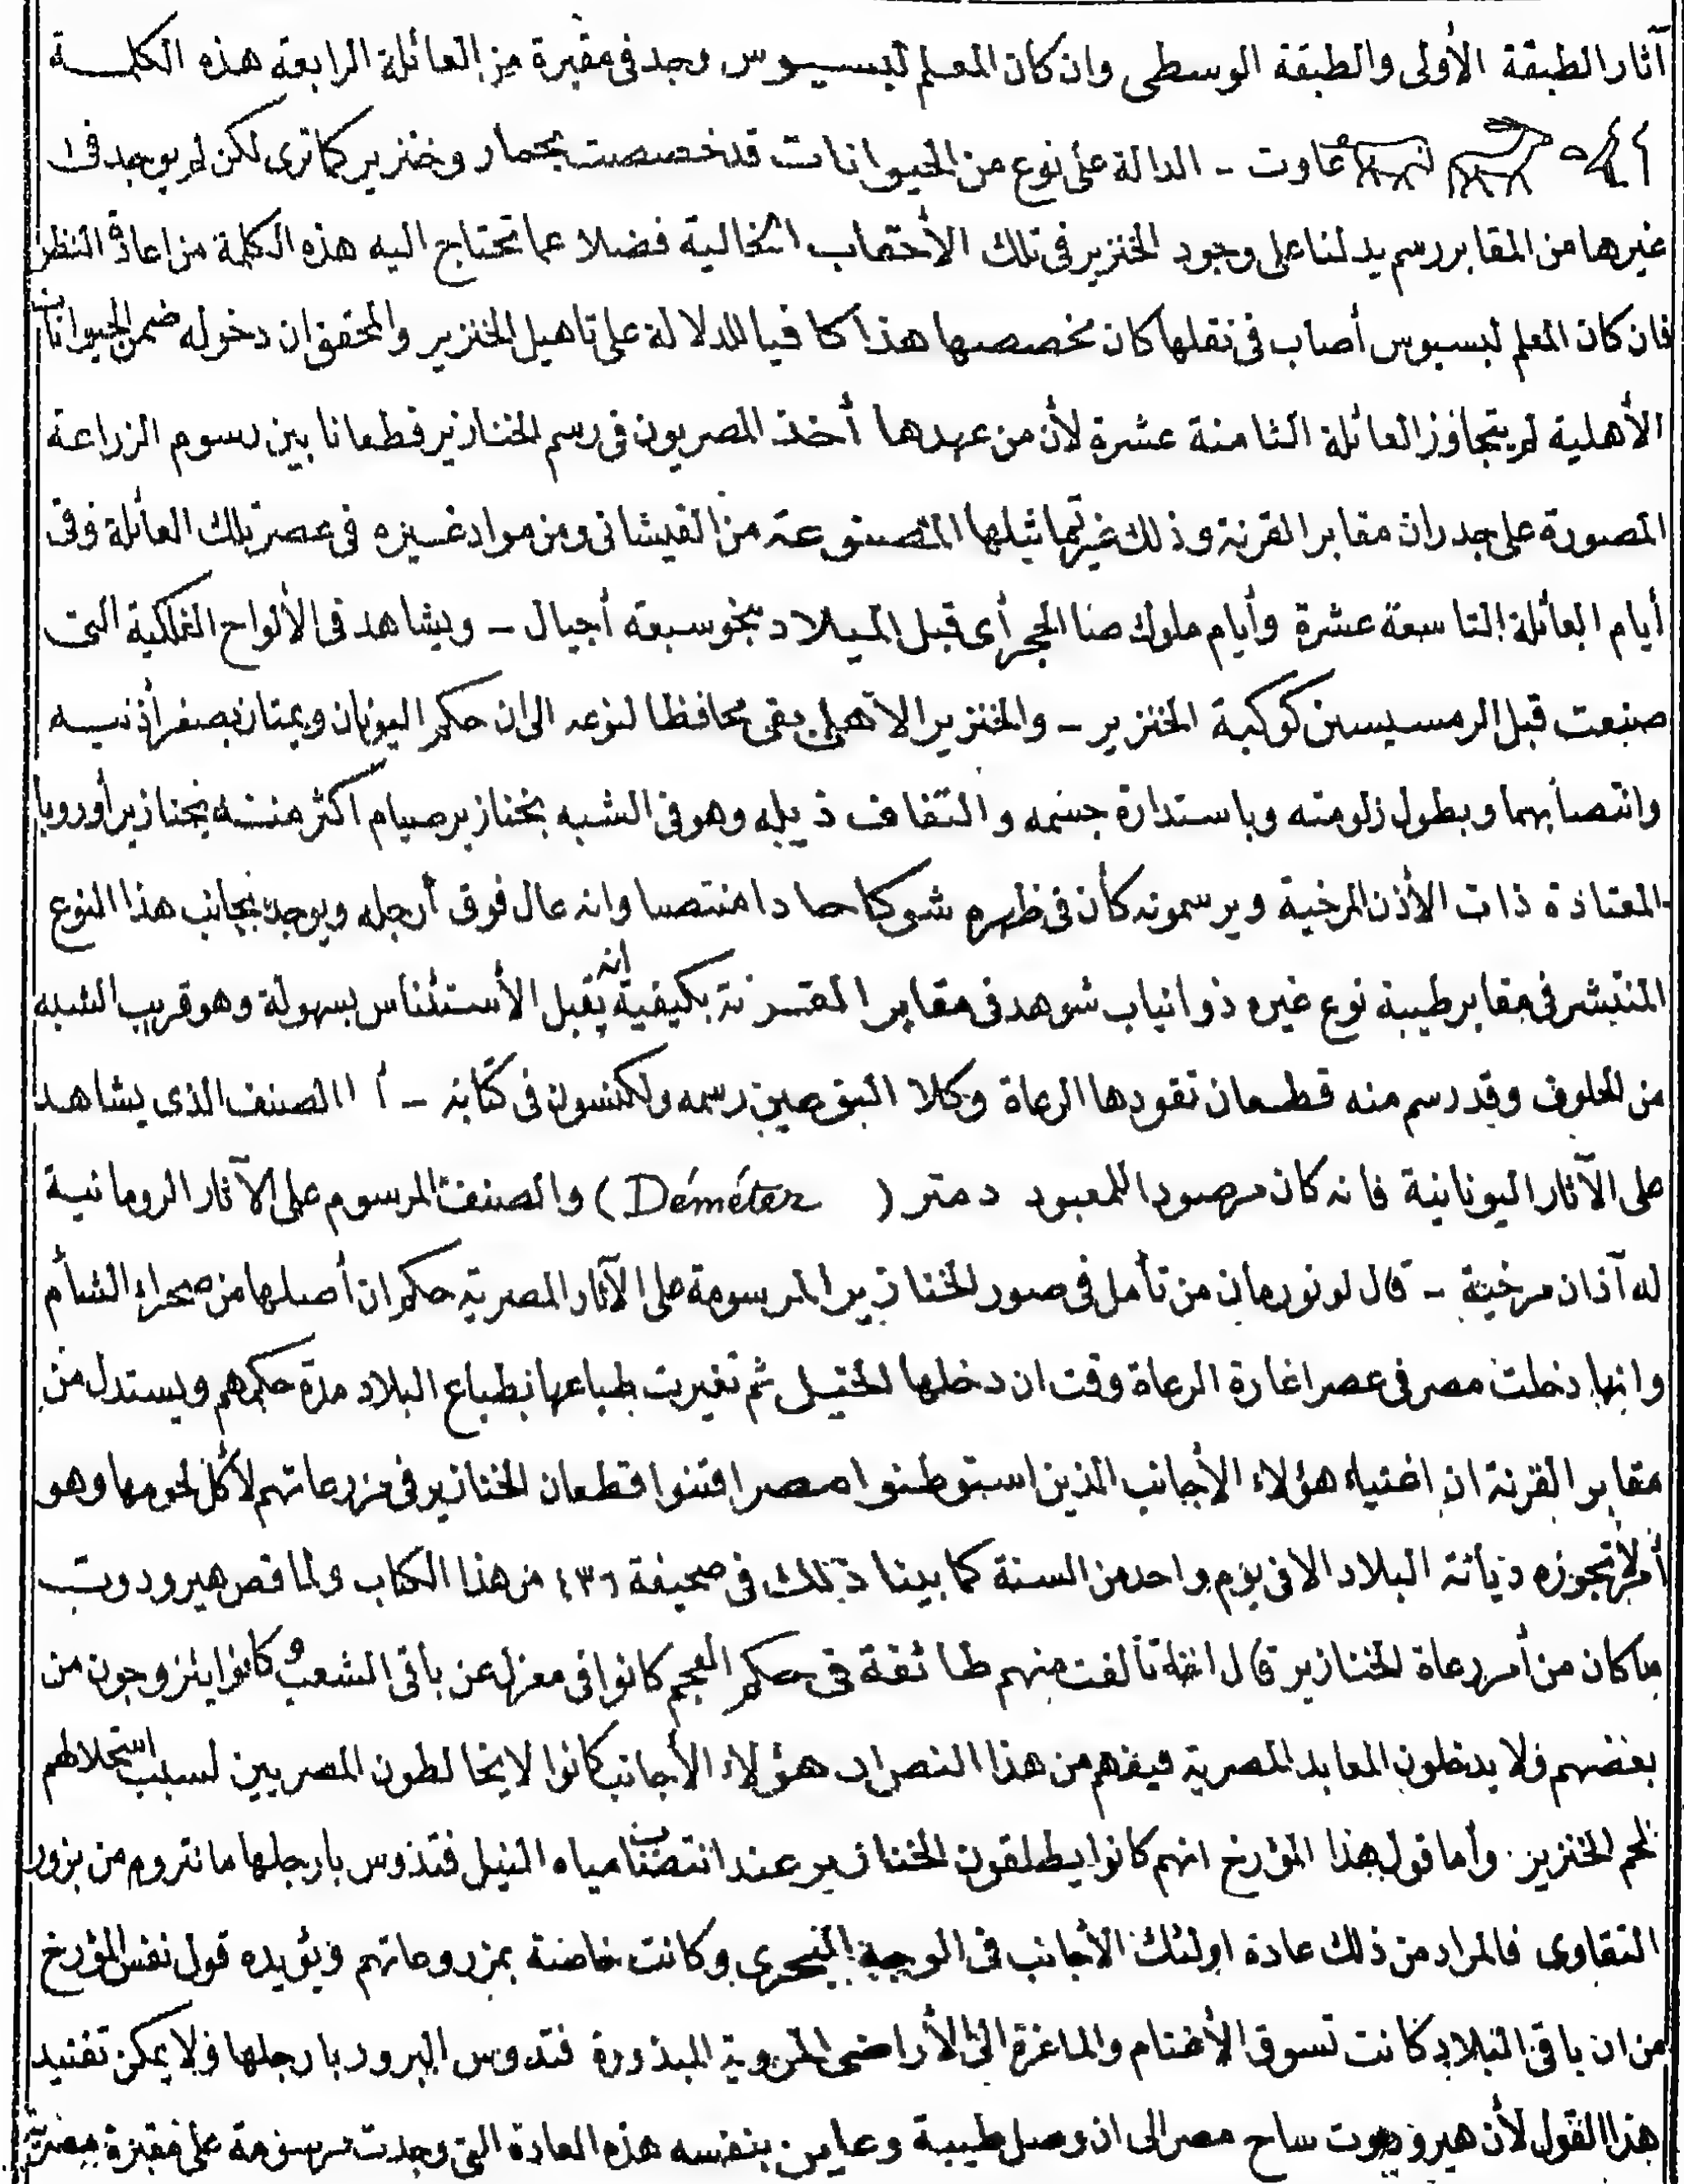 آثار الطبقة الأولى والطبقة الوسطى وان كان المعلم لبسيوس وجد فى مقبرة من العائلة الرابعة هذه الكلمة
عاوت - الدالة على نوع من الحيوانات قد خصصت بحمار وخنزير كما ترى لكن لم يوجد فى
غيرها من المقابر رسم يدلنا على وجود الخنزير فى تلك الأحقاب الخالية فضلا عما تحتاج اليه هذه الكلمة من اعادة النظر
فان كان المعلم لبسيوس أصاب فى نقلها كان مخصصها هذا كافيا للدلالة على تاهيل الخنزير والمحقق ان دخوله ضمن الحيوانات
الأهلية لم يتجاوز العائلة الثامنة عشرة لأن من عهدها أخذ المصريون فى رسم الخنازير قطعانا بين رسوم الزراعة
المصورة على جدران مقابر القرنة وذلك غير تماثيلها المصنوعة من القيشانى ومن مواد غيره فى عصر تلك العائلة وفى
أيام العائلة التاسعة عشرة وأيام ملوك صا الحجر أى قبل الميلاد بنحو سبعة أجيال - ويشاهد فى الألواح الفلكية التى
صنعت قبل الرمسيسين كوكبة الخنزير - والخنزير الاهلى بقى محافظا لنوعه الى ان حكم اليونان ويمتاز بصغر أذنيه
وانتصابهما وبطول زلومته وباستدارة جسمه والتفاف ذيله وهو فى الشبه بخنازير صيام اكثر منه بخنازير أوروبا
المعتادة ذات الأذن المرخية ويرسمونه كأن فى ظهره شوكا حادا منتصبا وانه عال فوق أرجله ويوجد بجانب هذا النوع
المنتشر فى مقابر طيبة نوع غيره ذو انياب شوهد فى مقابر القرنة بكيفية انه يقبل الأستئناس بسهولة وهو قريب الشبه
من الحلوف وقد رسم منه قطعان تقودها الرعاة وكلا النوعين رسمه ولكنسون فى كتابه - أما الصنف الذى يشاهد
على الآثار اليونانية فانه كان مرصودا للمعبود دمتر ( Déméter ) والصنف المرسوم على الآثار الرومانية
له آذان مرخية - قال لونورمان من تأمل فى صور الخنازير المرسومة على الآثار المصرية حكم ان أصلها من صحراء الشأم
وانها دخلت مصر فى عصر اغارة الرعاة وقت ان دخلها الخيل ثم تغيرت طباعها بطباع البلاد مدة حكمهم ويستدل من
مقابر القرنة ان اغنياء هؤلاء الأجانب الذين استوطنوا مصر اقتنوا قطعان الخنازير فى مزرعاتهم لأكل لحومها وهو
أمر لا تجوزه ديانة البلاد الا فى يوم واحد من السنة كما بينا ذلك فى صحيفة ٤٣٦ من هذا الكتاب ولما قص هيرودوت
ما كان من أمر رعاة الخنازير قال انه تألفت منهم طائفة فى حكم العجم كانوا فى معزل عن باقى الشعب وكانوا يتزوجون من
بعضهم فلا يدخلون المعابد المصرية فيفهم من هذا النص ان هؤلاء الأجانب كانوا لا يخالطون المصريين لسبب استحلالهم
لحم الخنزير. وأما قول هذا المؤرخ انهم كانوا يطلقون الخنازير عند انتضاب مياه النيل فتدوس بارجلها ما تتروم من بزور
التقاوى فالمراد من ذلك عادة اولئك الأجانب فى الوجه البحرى وكانت خاصة بمزروعاتهم ويؤيده قول نفس المؤرخ
من ان باقى البلاد كانت تسوق الأغنام والماعزة الى الأراضى المروية المبذورة فتدوس البزور بارجلها ولا يمكن تفنيد
هذا القول لأن هيرودوت ساح مصر الى ان وصل طيبة وعاين بنفسه هذه العادة التى وجدت مرسومة على مقبرة